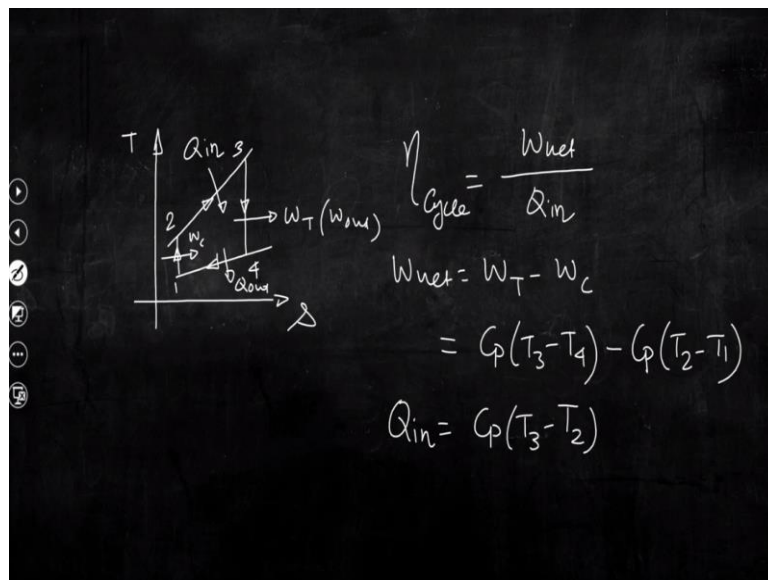 T
Qin 3
2
WT (Wout)
Wc
1
4
Qout
S
ηcycle = Wnet / Qin
Wnet = WT - Wc
= Cp(T3-T4) - Cp(T2-T1)
Qin = Cp(T3-T2)